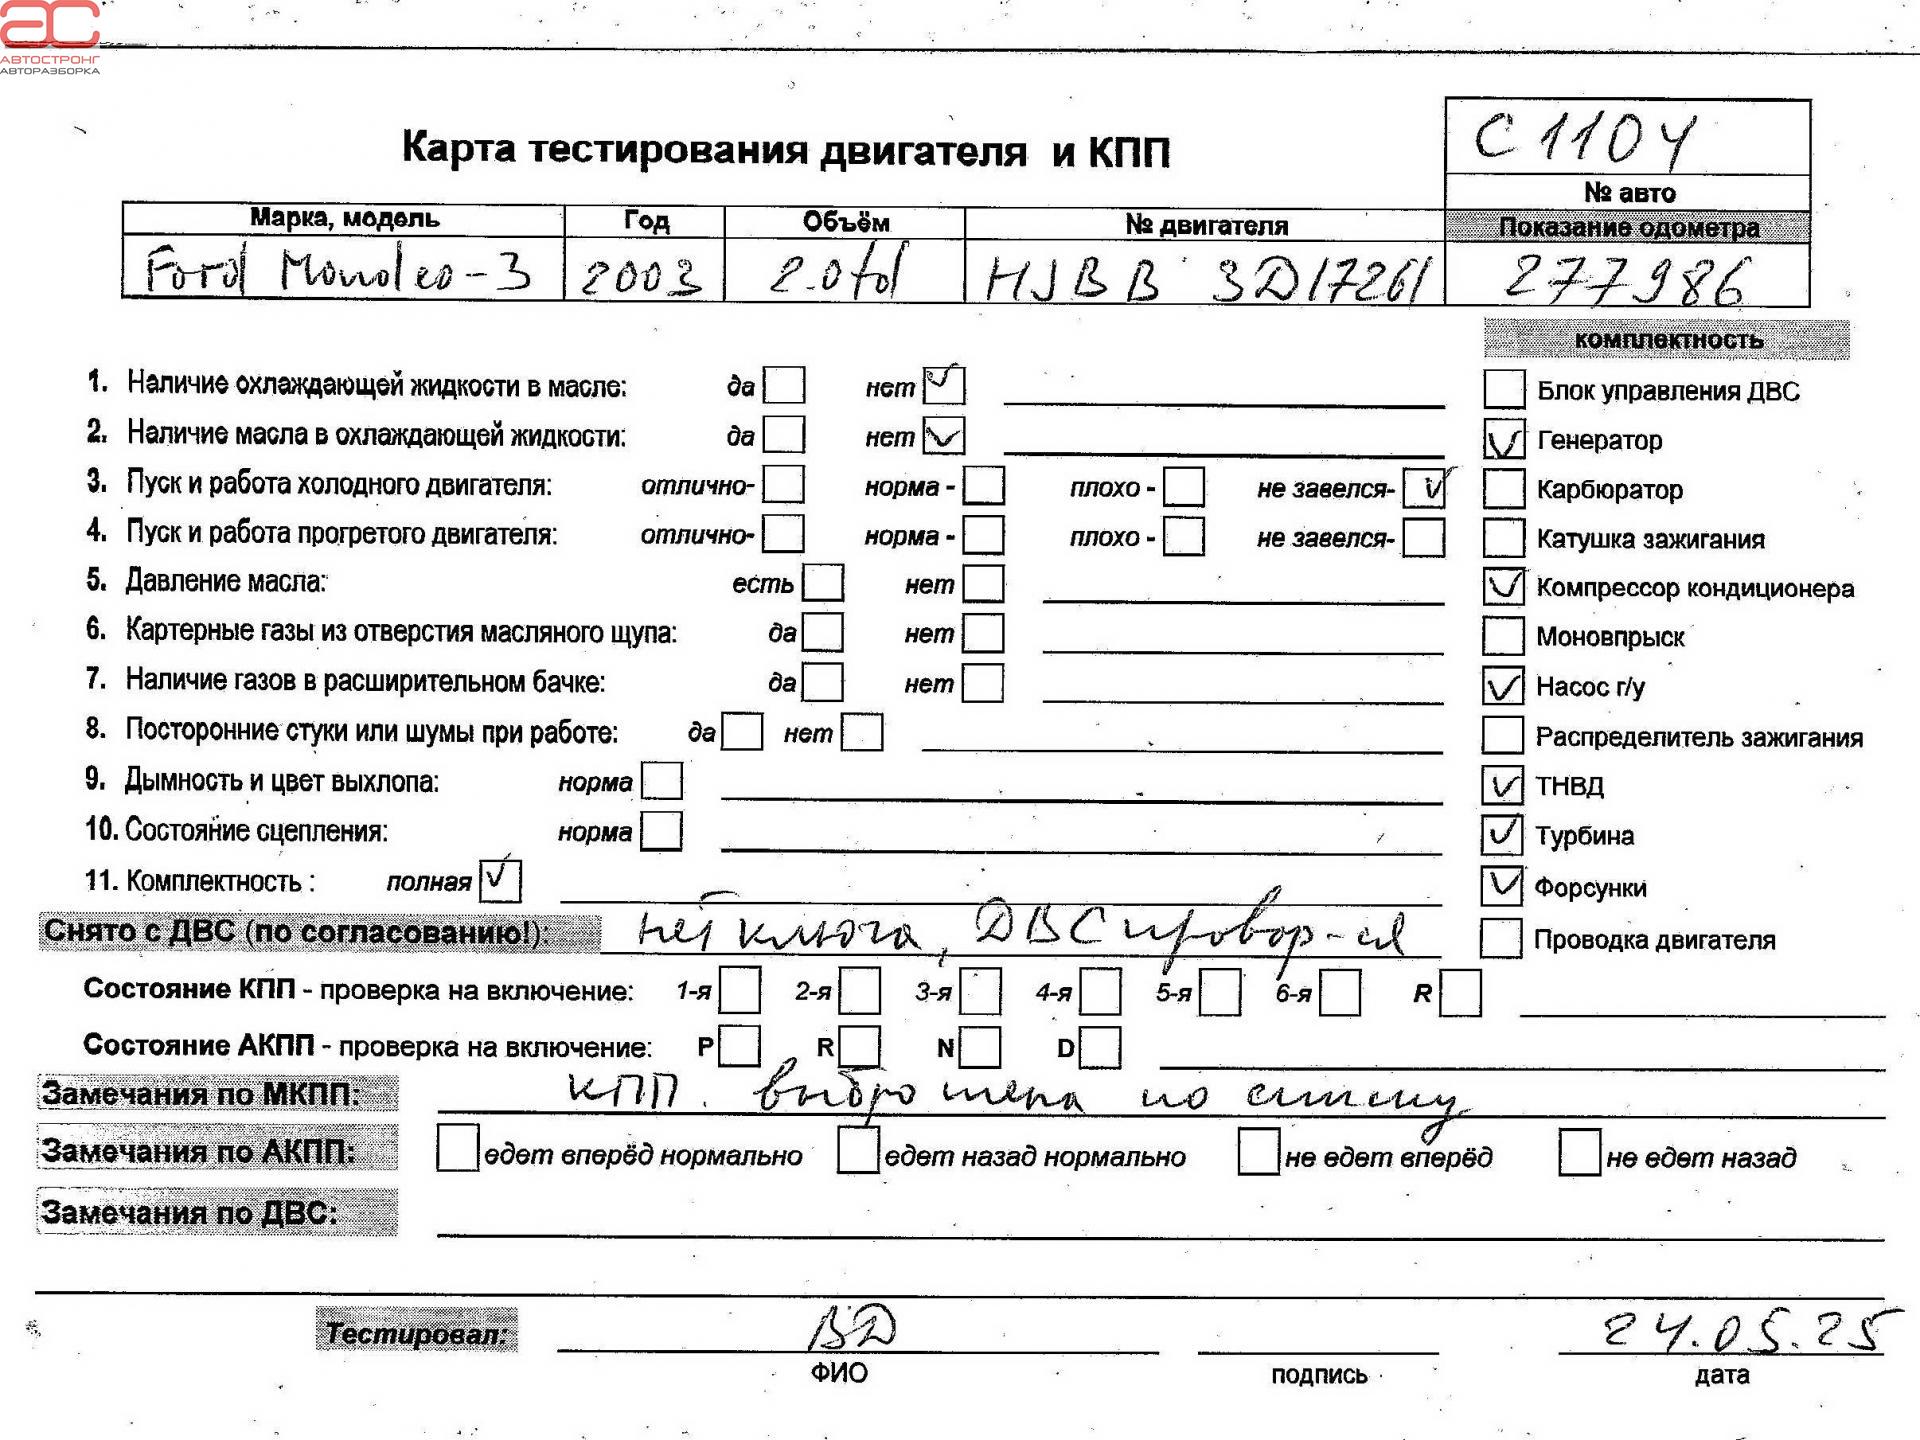 АС
АВТОСТРОНГ
АВТОРАЗБОРКА
С1104
Карта тестирования двигателя и КПП
№ авто
Марка, модель Год Объём № двигателя Показание одометра
Ford Mondeo-3 2003 2.0td HJBB 3D17261 277986
комплектность
1. Наличие охлаждающей жидкости в масле: да нет ✓ Блок управления ДВС
2. Наличие масла в охлаждающей жидкости: да нет ✓ ✓ Генератор
3. Пуск и работа холодного двигателя: отлично- норма - плохо - не завелся- ✓ Карбюратор
4. Пуск и работа прогретого двигателя: отлично- норма - плохо - не завелся- Катушка зажигания
5. Давление масла: есть нет ✓ Компрессор кондиционера
6. Картерные газы из отверстия масляного щупа: да нет Моновпрыск
7. Наличие газов в расширительном бачке: да нет ✓ Насос г/у
8. Посторонние стуки или шумы при работе: да нет Распределитель зажигания
9. Дымность и цвет выхлопа: норма ✓ ТНВД
10. Состояние сцепления: норма ✓ Турбина
11. Комплектность : полная ✓ ✓ Форсунки
Снято с ДВС (по согласованию!): нет ключа, ДВС провор-ся Проводка двигателя
Состояние КПП - проверка на включение: 1-я 2-я 3-я 4-я 5-я 6-я R
Состояние АКПП - проверка на включение: P R N D
Замечания по МКПП: КПП. выброшена по снизу
Замечания по АКПП: едет вперёд нормально едет назад нормально не едет вперёд не едет назад
Замечания по ДВС:
Тестировал: ВД 24.05.25
ФИО подпись дата